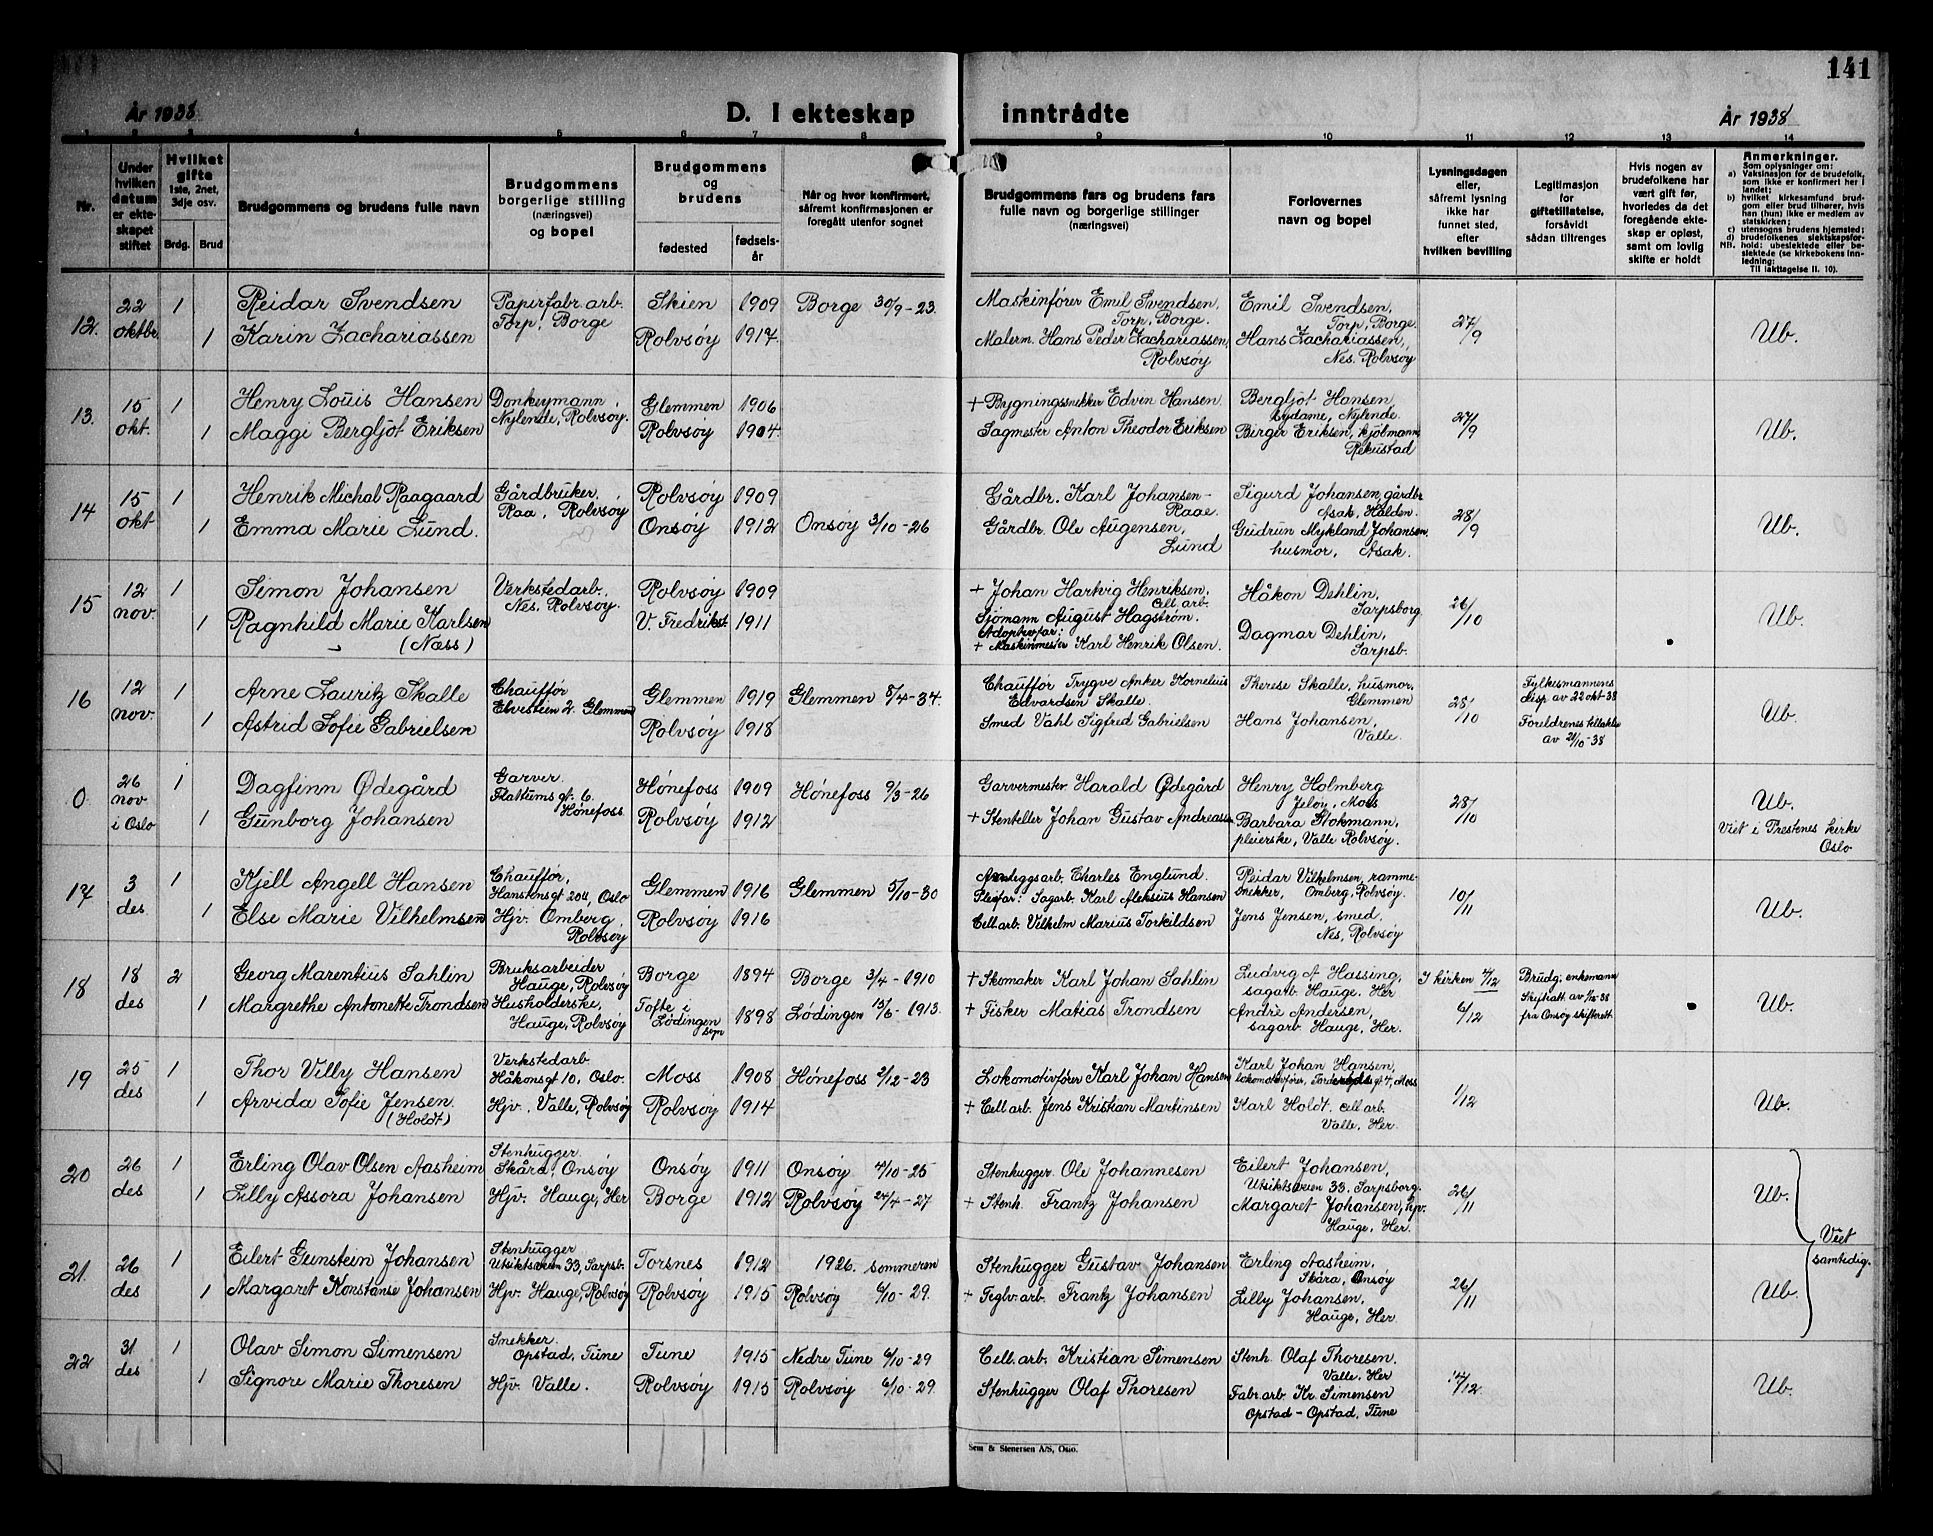 141
År 1938
D. I ekteskap inntrådte
År 1938
1 2 3 4 5 6 7 8 9 10 11 12 13 14
Nr.
Under hvilken datum er ekteskapet stiftet
Hvilket gifte 1ste, 2net, 3dje osv.
Brdg. Brud
Brudgommens og brudens fulle navn
Brudgommens borgerlige stilling (næringsvei) og bopel
Brudgommens og brudens
fødested
fødselsår
Når og hvor konfirmert, såfremt konfirmasjonen er foregått utenfor sognet
Brudgommens fars og brudens fars fulle navn og borgerlige stillinger (næringsvei)
Forlovernes navn og bopel
Lysningsdagen eller, såfremt lysning ikke har funnet sted, efter hvilken bevilling
Legitimasjon for giftetillatelse, forsåvidt sådan tiltrenges
Hvis nogen av brudefolkene har vært gift før, hvorledes da det foregående ekteskap er opløst, samt om lovlig skifte er holdt
Anmerkninger.
Som oplysninger om:
a) Vaksinasjon for de brudefolk, som ikke er konfirmert her i landet;
b) hvilket kirkesamfund brudgom eller brud tilhører, hvis han (hun) ikke er medlem av statskirken;
c) utensogns brudens hjemsted;
d) brudefolkenes slektskapsforhold: ubeslektede eller beslektede (se kirkebokens innledning:
NB.
Til iakttagelse II. 10).
12. 22 oktbr. 1 Reidar Svendsen Papirfabr.arb. Torp, Borge Skien 1909 Borge 30/9-23. Maskinfører Emil Svendsen, Torp, Borge. Emil Svendsen, Torp, Borge. 27/9 Ub.
1 Karin Zachariassen Rolvsöy 1914. Malerm. Hans Peder Zachariassen, Rolvsöy Hans Zachariassen, Nes. Rolvsöy
13. 15 okt. 1 Henry Louis Hansen Donkeymann, Nylende, Rolvsöy. Glemmen 1906 + Bygningssnekker Edvin Hansen Bergljot Hansen, sydame, Nylende. 27/9 Ub.
1 Maggi Bergljot Eriksen Rolvsöy 1904. Sagmester Anton Theodor Eriksen Birger Eriksen, kjølmann, Rekustad
14 15 okt 1 Henrik Michal Raagaard Gårdbruker, Raa, Rolvsöy Rolvsöy 1909 Gårdbr. Karl Johansen- Raae. Sigurd Johansen, gårdbr Asak, Halden. 28/9 Ub.
1 Emma Marie Lund. Onsöy 1912 Onsoy 3/10-26 Gårdbr. Ole Augensen, Lund Gudrun Mykland Johansen. husmor, Asak.
15 12 nov. 1 Simon Johansen Verkstedarb., Nes. Rolvsöy. Rolvsöy 1909 + Johan Hartvig Henriksen, cell.arb. Håkon Dehlin, Sarpsborg 26/10 Ub.
1 Ragnhild Marie Karlsen (Næss) V. Fredrikst. 1911 Sjömann August Hagström. Adoptivfar: + Maskinmester Karl Henrik Olsen. Dagmar Dehlin, Sarpsb.
16 12 nov. 1 Arne Lauritz Skalle Chauffør Elvestien 2. Glemmen Glemmen 1919 Glemmen 8/4-34. Chauffør Trygve Anker Kornelius Edvardsen Skalle. Therese Skalle, husmor, Glemmen 28/10 Fylkesmannens disp av 22 okt-38 Ub.
1 Astrid Sofie Gabrielsen Rolvsöy 1918 Smed Vahl Sigfred Gabrielsen Hans Johansen, Valle. Foreldrenes tillatelse av 21/10-38
0 26 nov i Oslo 1 Dagfinn Ødegård Garver. Flattums gt. 6. Hønefoss Hönefoss 1909 Hönefoss 9/3-26 Garvermester Harald Ødegård Henry Holmberg Jeløy, Moss 28/10 Ub.
1 Gunborg Johansen Rolvsöy 1912 + Stenteller Johan Gustav Andreassen Barbara Glokmann, pleierske, Valle Rolvsöy. Viet i Prestenes kirke Oslo
17 3 des 1 Kjell Angell Hansen Chauffør, Hanstensgt 20 4, Oslo Glemmen 1916 Glemmen 5/10-30 Anleggsarb. Charles Englund. Pleifar: Sagarb. Karl Aleksius Hansen Reidar Vilhelmsen, ramme-snekker, Omberg, Rolvsöy. 10/11 Ub.
1 Else Marie Vilhelmsen Hjv. Omberg, Rolvsöy Rolvsöy 1916 Cell.arb. Vilhelm Marius Torkildsen Jens Jensen, smed, Nes, Rolvsöy
18 18 des 2 Georg Marentius Sahlin Bruksarbeider Hauge, Rolvsöy Borge 1894 Borge 3/4-1910 + Skomaker Karl Johan Sahlin Ludvig A Hassing, sagarb. Hauge. Her I kirken 4/12 Brudg. enkemann Ub.
1 Margrethe Antonette Trondsen Husholderske, Hauge, Rolvsöy Tofte i Lödingen 1898 Lödingen 15/6-1913. + Fisker Matias Trondsen André Andersen, sagarb Hauge, Her. 6/12 Skifteatt. av 1/12-38 fra Onsöy skifterett.
19 25 des 1 Thor Villy Hansen Verkstedarb Håkonsgt 10, Oslo. Moss 1908 Hönefoss 2/12-23 Lokomotivfører Karl Johan Hansen Karl Johan Hansen, lokomotivfører, gt. 4, Moss 1/12 Ub.
1 Arvida Sofie Jensen. (Holdt) Hjv. Valle, Rolvsöy Rolvsöy 1914 + Cell arb. Jens Kristian Martinsen Karl Holdt, cell arb. Valle, Her.
20 26 des 1 Erling Olav Olsen Aasheim Stenhugger Skåra, Onsöy Onsöy 1911 Onsöy 4/10-25 Stenhugger Ole Johannesen Eilert Johansen, Utsiktsveien 33, Sarpsborg. 26/11 Ub.
1 Lilly Assora Johansen Hjv. Hauge, Her Borge 1912 Rolvsöy 24/4-27 + Stenh. Frantz Johansen Margaret Johansen, hjv. Hauge, Her.
Viet samtidig.
21. 26 des 1 Eilert Gunstein Johansen Stenhugger Utsiktsveien 33, Sarpsb. Torsnes 1912 1926. sommeren Stenhugger Gustav Johansen Erling Aasheim, Skåra, Onsöy 26/11 Ub.
1 Margaret Konstanse Johansen Hjv. Hauge, Rolvsöy Rolvsöy 1915 Rolvsöy 6/10-29. + Teglv.arb. Frantz Johansen Lilly Johansen, Hauge, Her.
22 31 des 1 Olav Simon Simensen Snekker. Opstad, Tune Tune 1915 Nedre Tune 6/10-29 Cell.arb. Kristian Simensen Stenh. Olaf Thoresen. Valle, Her 14/12 Ub.
1 Signore Marie Thoresen Hjv. Valle. Rolvsöy 1915 Rolvsöy 6/10-29. Stenhugger Olaf Thoresen Fabr.arb Kr. Simensen Opstad - Opstad, Tune
Sem & Stenersen A/S, Oslo.